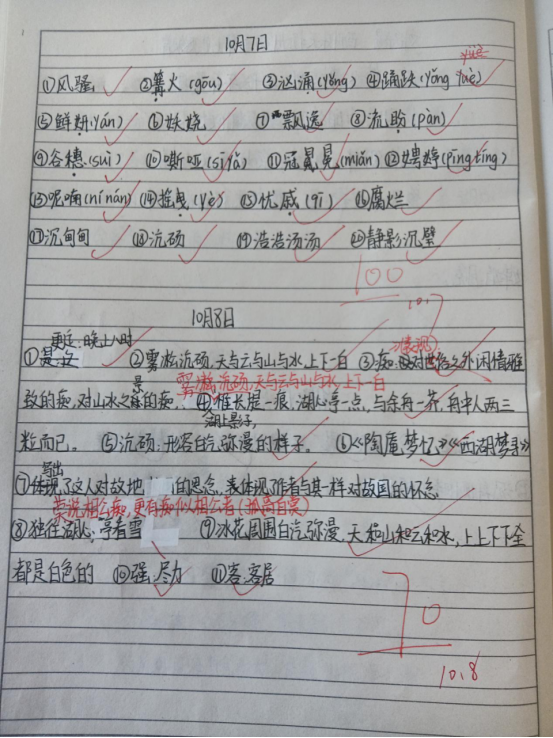 10月7日
yuè
①风骚 ②篝火(gōu) ③汹涌(yǒng) ④踊跃(yǒng yuè)
⑤鲜妍(yán) ⑥妖娆 ⑦飘逸 ⑧流盼(pàn)
⑨谷穗(suì) ⑩嘶哑(sī yǎ) ⑪冠冕(miǎn) ⑫娉婷(pīng tíng)
⑬呢喃(ní nán) ⑭摇曳(yè) ⑮忧戚(qī) ⑯腐烂
⑰沉甸甸 ⑱沆砀 ⑲浩浩汤汤 ⑳静影沉璧
100
10.7
10月8日
更定:晚上八时
① ②雾凇沆砀,天与云与山与水,上下一白 ③痴:对世俗之外闲情雅
雾凇沆砀,天与云与山与水,上下一白
致的痴,对山水之景的痴. ④惟长堤一痕,湖心亭一点,与余舟一芥,舟中人两三
粒而已。 ⑤沆砀:形容白汽弥漫的样子。 ⑥《陶庵梦忆》《西湖梦寻》
写出
⑦体现了这人对故地的思念,表体现了作者与其一样对故国的怀念
莫说相公痴,更有痴似相公者(孤高自赏)
⑧独往湖心亭看雪 ⑨冰花周围白汽弥漫,天和山和云和水,上上下下全
都是白色的 ⑩强:尽力 ⑪客:客居
70
10.8